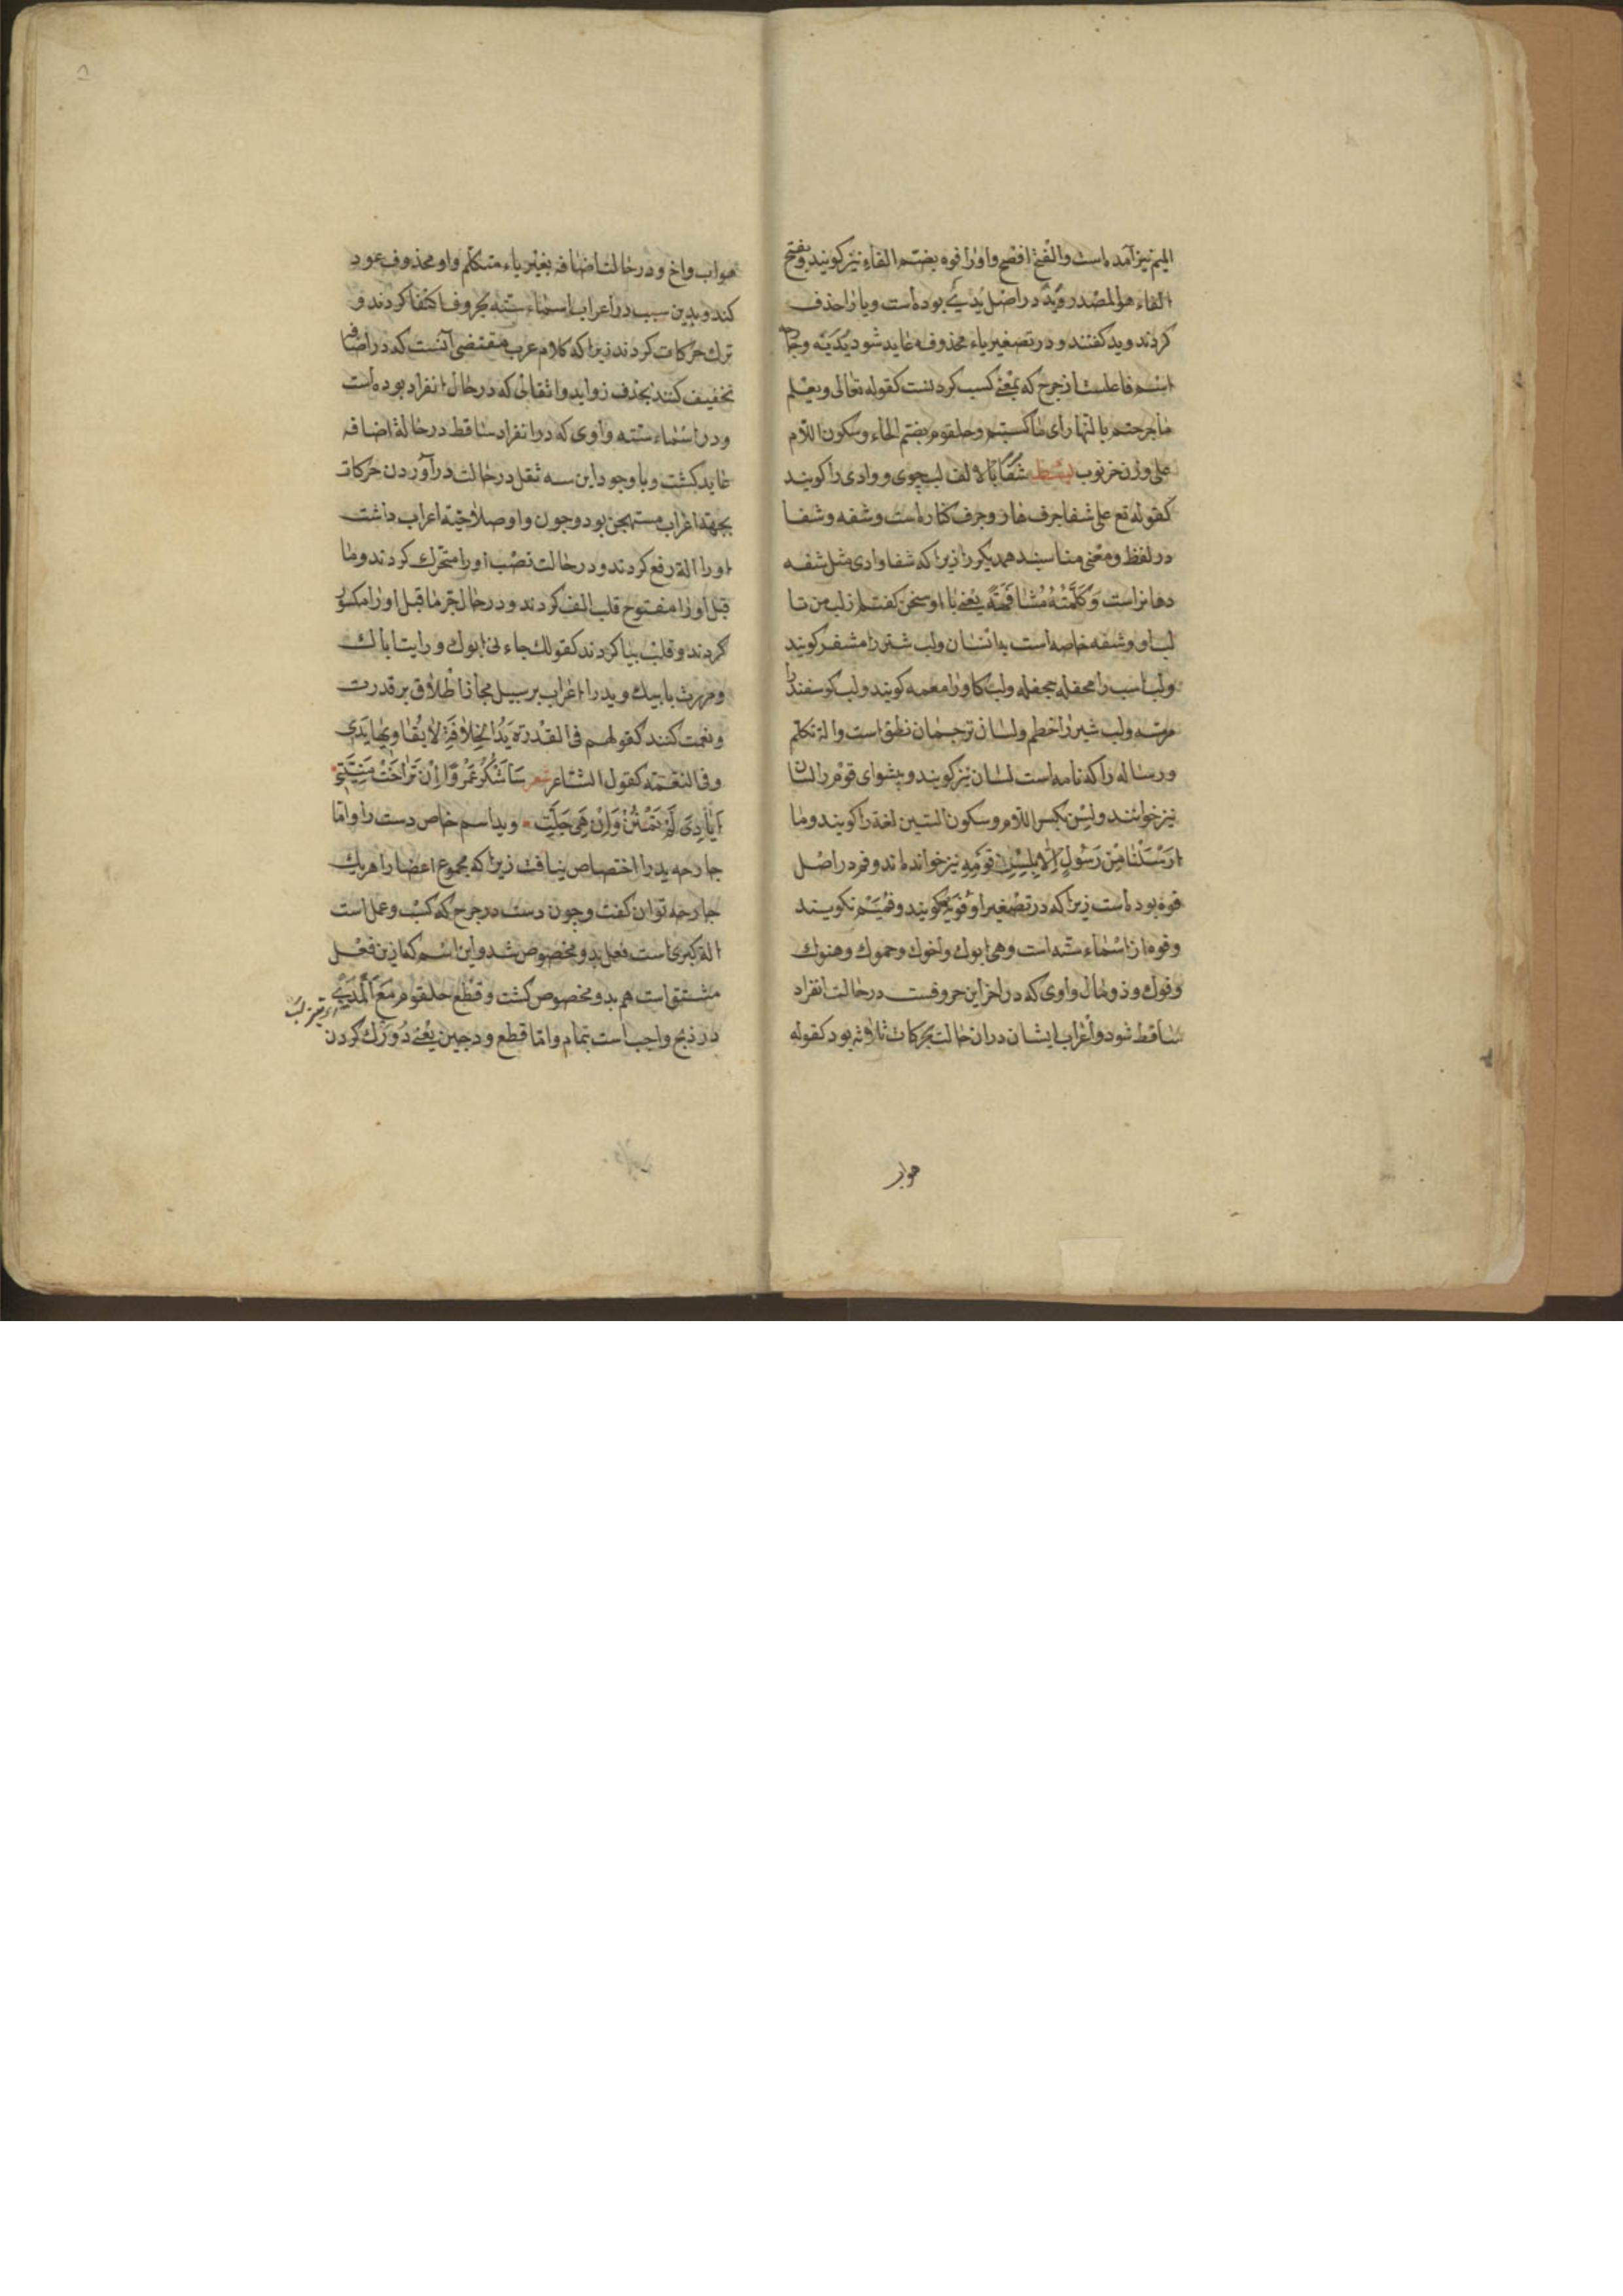 المیم نیز آمده است والفتح افصح واو را فوه بضم الفاء نیز کویند وبفتح
الفاء هو المصدر وید در اصل یدی بوده است ویا را حذف
کردند وید کفتند ودر تصغیر یاء محذوفه عاید شود یدیه وجارحه
اسم فاعلست از جرح که بمعنی کسب کردنست کقوله تعالی ویعلم
ما جرحتم بالنهار ای ما کسبتم وحلقوم بضم الحاء وسکون اللام
علی وزن خرنوب شفا بالالف لب جوی ووادی را کویند
کقوله تع علی شفا جرف هار وجرف کناره است وشفه وشفا
در لفظ ومعنی مناسبند همدیکر را زیرا که شفا وادی مثل شفه
دهانراست وَکَلَّمْتُهُ مُشَافَهَةً یعنی با او سخن کفتم از لب من تا
لب او وشفه خاصه است بانسان ولب شتر را مشفر کویند
ولب اسب را جحفله ولب کاو را مقمه کویند ولب کوسفند را
مرمه ولب شیر را خطم ولسان ترجمان نطق است والة تکلم
ورساله را که نامه است لسان نیز کویند وپیشوای قوم را لسان
نیز خوانند ولسن بکسر اللام وسکون السین لغة را کویند وما
ارسلنا من رسول الا بلسن قومه نیز خوانده اند وفم در اصل
فوه بوده است زیرا که در تصغیر او فویه کویند وفمیم نکویند
وفوه از اسماء سته است وهی ابوک واخوک وحموک وهنوک
وفوک وذو مال واوی که در اخر این حروفست در حالت انفراد
ساقط شود واعراب ایشان در ان حالت بحرکات ثلاثه بود کقوله
هو اب
هو اب واخ ودر حالت اضافه بغیر یاء متکلم واو محذوف عود
کند وبدین سبب در اعراب اسماء سته بحروف اکتفا کردند و
ترک حرکات کردند زیرا که کلام عرب مقتضی آنست که در اضافه
تخفیف کنند بحذف زواید واثقالی که در حال انفراد بوده است
ودر اسماء سته واوی که در انفراد ساقط در حالة اضافه
عاید کشت وبا وجود این سه ثقل در حالت در آوردن حرکات
بجهة اعراب مستهجن بود وچون واو صلاحیة اعراب داشت
او را الة رفع کردند ودر حالت نصب او را متحرک کردند وما
قبل او را مفتوح قلب الف کردند ودر حال جر ما قبل او را مکسور
کردند وقلب بیا کردند کقولک جاءنی ابوک ورایت اباک
ومررت بابیک وید را اعراب بر سبیل مجاز اطلاق بر قدرت
ونعمت کنند کقولهم فی القدرة یَدُ الخِلافَةِ لا یُقَاوِیها یَدی
وفی النعمة کقول الشاعر شعر سَاَشْکُرُ عَمْرًا اِنْ تَرَاخَتْ مَنِیَّتی
اَیَادِیَ لَمْ تَمْنُنْ وَاِنْ هِیَ جَلَّتِ وید اسم خاص دست را واما
جارحه ید را اختصاص نیافت زیرا که مجموع اعضا را هر یک
جارحه توان کفت وچون دست در جرح که کسب وعمل است
الة کبری است فعل بدو مخصوص شد واین اسم که ازین فعل
مشتق است هم بدو مخصوص کشت وقطع حلقوم مع المریء
در ذبح واجب است بتمام واما قطع ودجین یعنی دو رک کردن